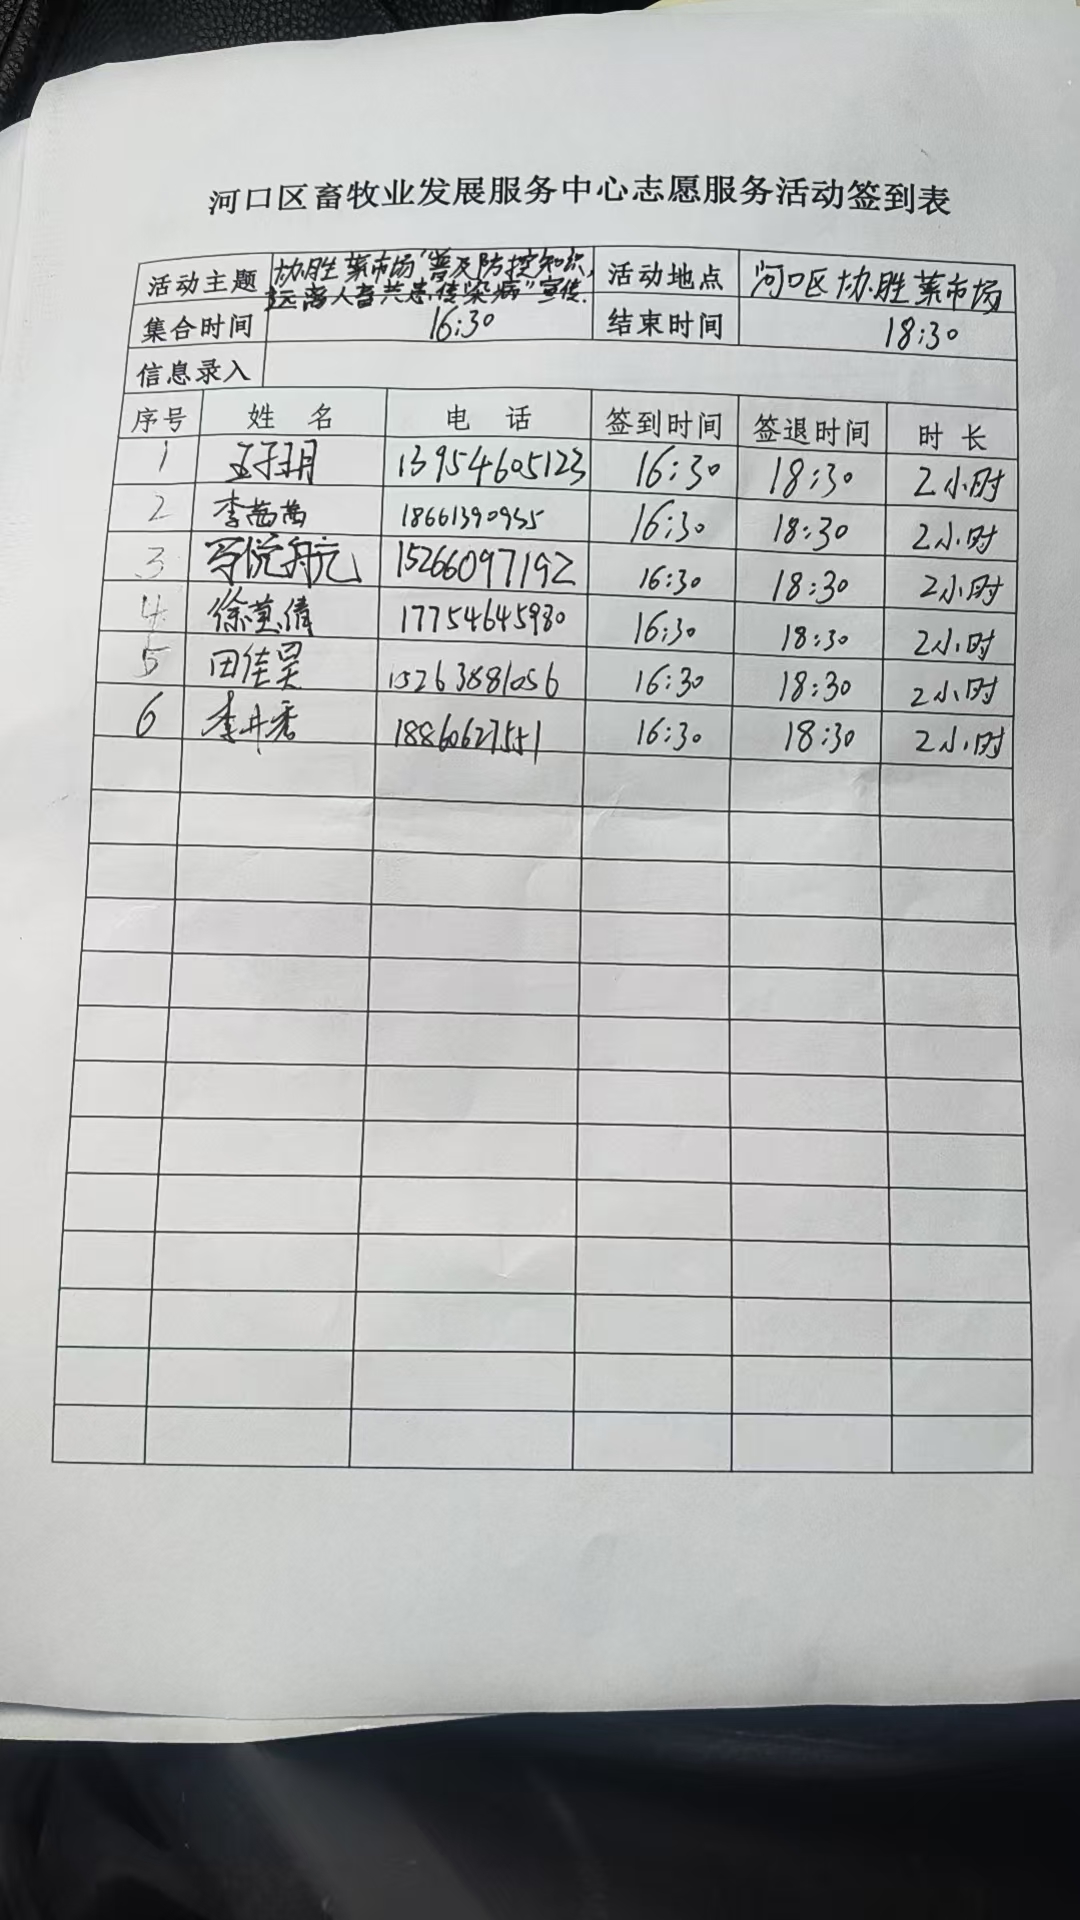 河口区畜牧业发展服务中心志愿服务活动签到表
活动主题 协胜菜市场“普及防控知识, 远离人畜共患传染病”宣传. 活动地点 河口区协胜菜市场
集合时间 16:30 结束时间 18:30
信息录入
序号 姓名 电话 签到时间 签退时间 时长
1 13954605123 16:30 18:30 2小时
2 李茜茜 18661390955 16:30 18:30 2小时
3 15266097192 16:30 18:30 2小时
4 17754645980 16:30 18:30 2小时
5 田佳昊 15263881056 16:30 18:30 2小时
6 李丹秀 18860627551 16:30 18:30 2小时